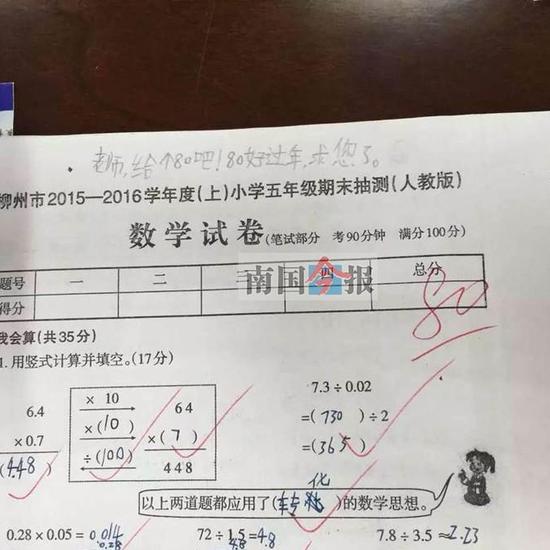 老师,给个80吧!80好过年,求您了。
柳州市2015—2016学年度(上)小学五年级期末抽测(人教版)
数学试卷(笔试部分 考90分钟 满分100分)
题号 一 二 三 四 总分
得分 80
南国今报
我会算(共35分)
1.用竖式计算并填空。(17分)
6.4
×0.7
(4.48)
× 10
×(10)
÷(100)
64
×(7)
448
7.3÷0.02
=(730)÷2
=(365)
以上两道题都应用了(转化)的数学思想。
0.28×0.05=0.014
72÷1.5=4.8
7.8÷3.5≈2.23